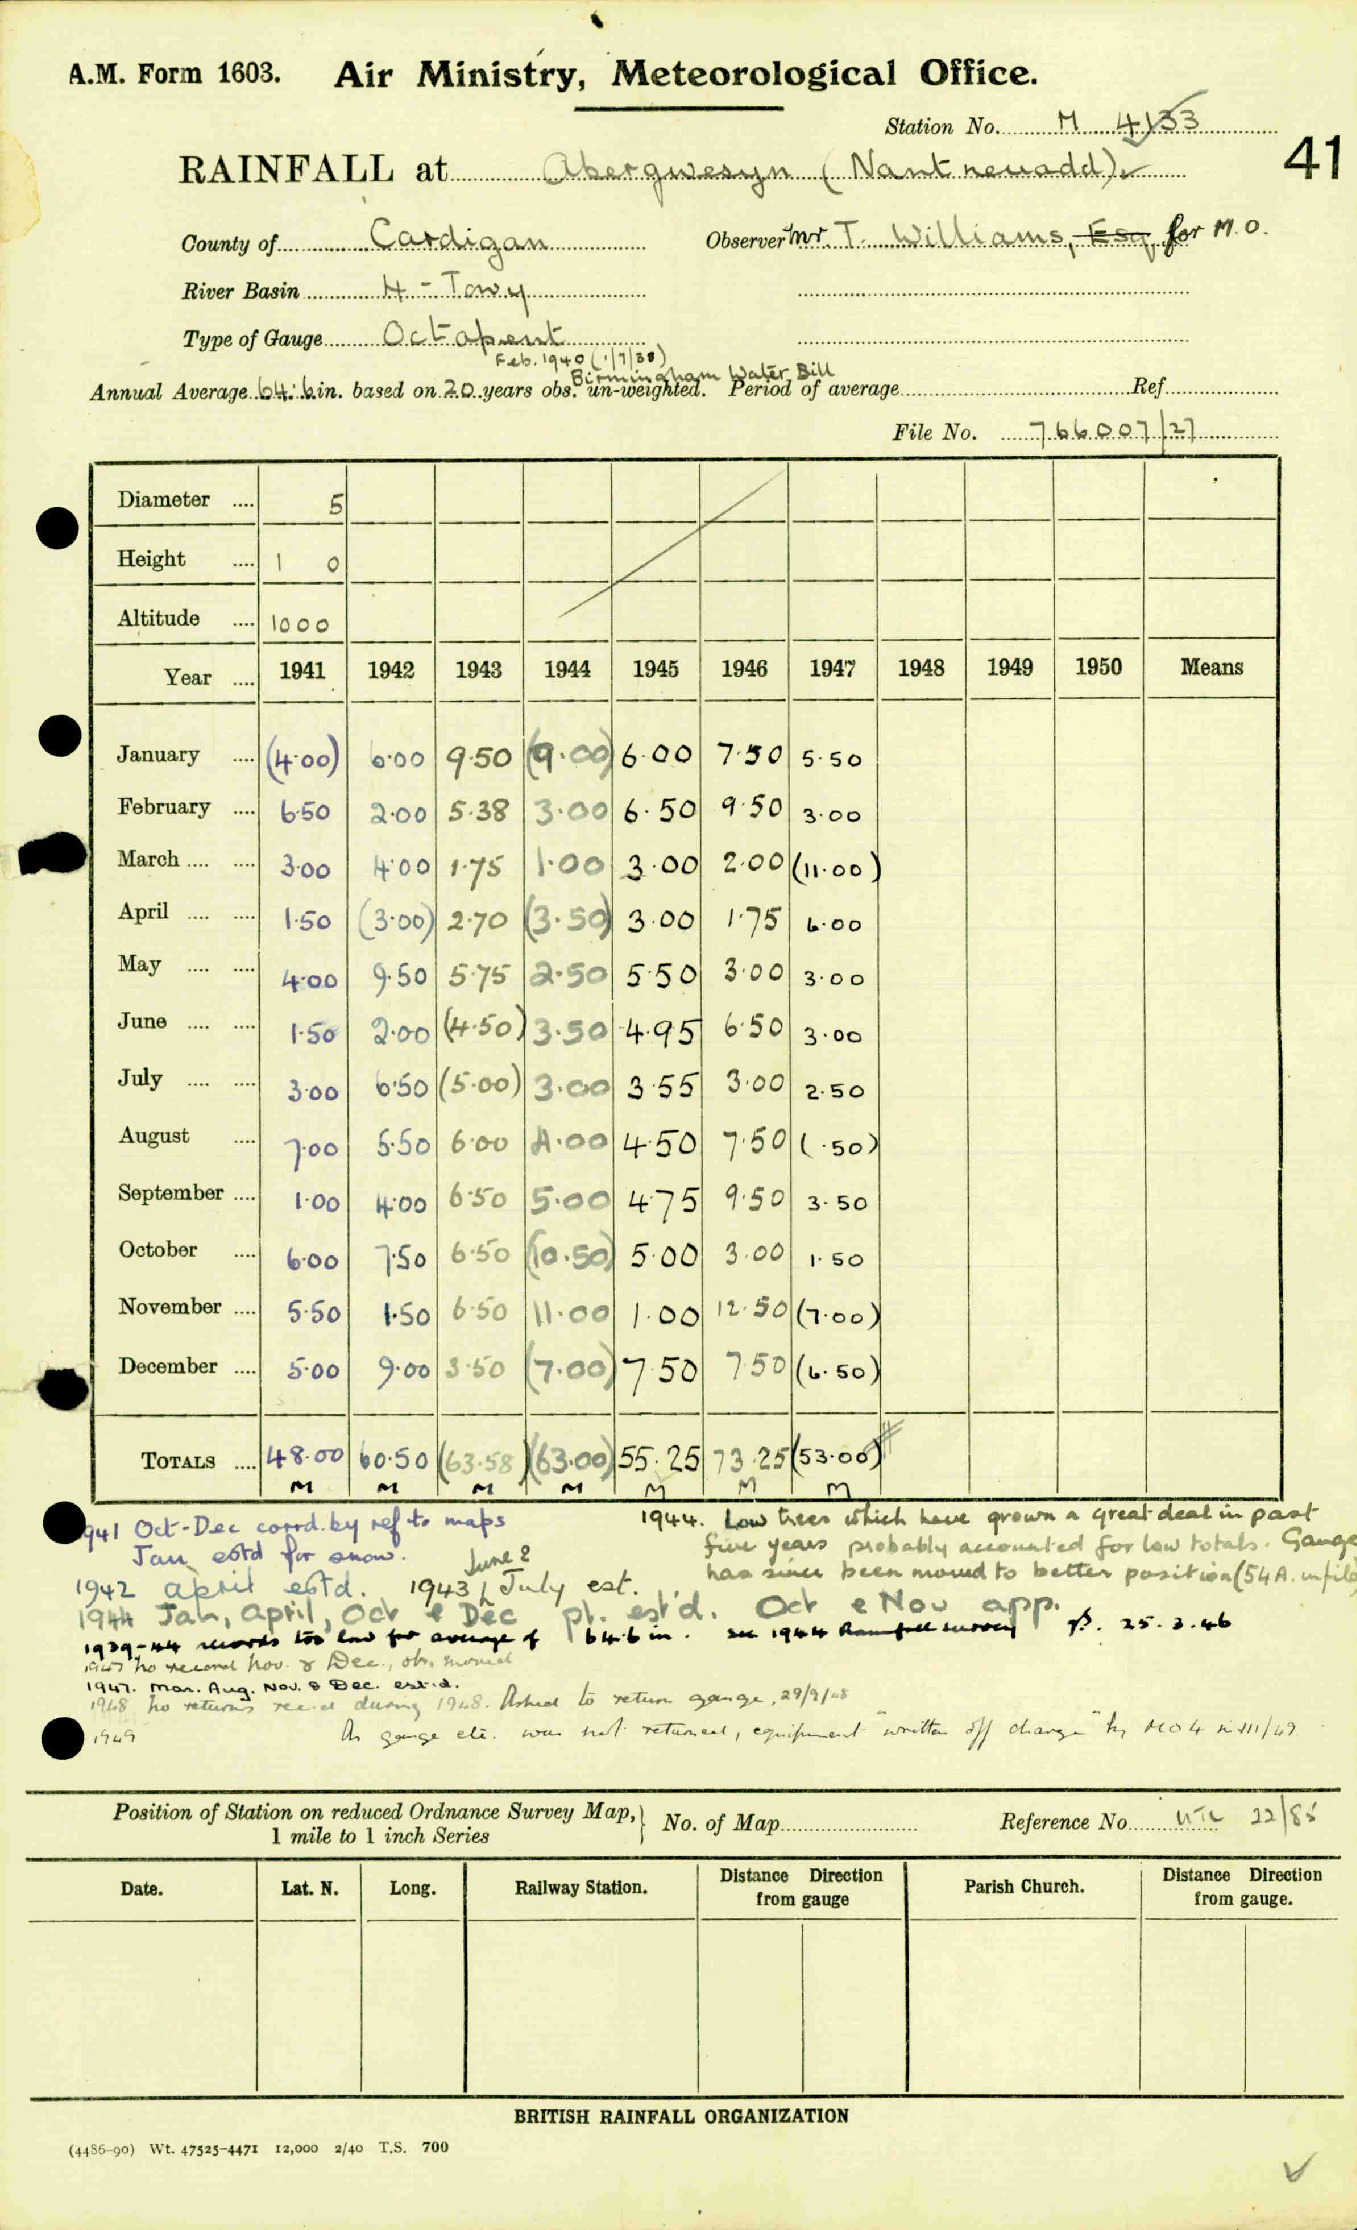 A.M. Form 1603. Air Ministry, Meteorological Office.
Station No. M 4133
41
RAINFALL at Abergwesyn (Nant neuadd).
County of Cardigan Observer Mr. T. Williams, Esq, for M.O.
River Basin H - Towy
Type of Gauge Octapent
Feb. 1940 (1/7/38)
Birmingham Water Bill
Annual Average 64.6 in. based on 20 years obs. un-weighted. Period of average Ref
File No. 766007/27
Diameter .... 5
Height .... 1 0
Altitude .... 1000
Year .... 1941 1942 1943 1944 1945 1946 1947 1948 1949 1950 Means
January .... (4.00) 6.00 9.50 (9.00) 6.00 7.50 5.50
February .... 6.50 2.00 5.38 3.00 6.50 9.50 3.00
March .... .... 3.00 4.00 1.75 1.00 3.00 2.00 (11.00)
April .... .... 1.50 (3.00) 2.70 (3.50) 3.00 1.75 6.00
May .... .... 4.00 9.50 5.75 2.50 5.50 3.00 3.00
June .... .... 1.50 2.00 (4.50) 3.50 4.95 6.50 3.00
July .... .... 3.00 6.50 (5.00) 3.00 3.55 3.00 2.50
August .... 7.00 5.50 6.00 4.00 4.50 7.50 (.50)
September .... 1.00 4.00 6.50 5.00 4.75 9.50 3.50
October .... 6.00 7.50 6.50 (10.50) 5.00 3.00 1.50
November .... 5.50 1.50 6.50 11.00 1.00 12.50 (7.00)
December .... 5.00 9.00 3.50 (7.00) 7.50 7.50 (6.50)
TOTALS .... 48.00 60.50 (63.58) (63.00) 55.25 73.25 (53.00)
M M M M M M M
1941 Oct-Dec corrd. by ref to maps
Jan estd for snow.
1944. Low trees which have grown a great deal in past
five years probably accounted for low totals. Gauge
has since been moved to better position (54A. in file)
1942 April estd. 1943 June & July est.
1944 Jan, April, Oct & Dec pt. est'd. Oct & Nov app.
1939-44 records too low for average of 64.6 in. see 1944 Rainfall survey 25.3.46
1947 no record Nov. & Dec., obs. moved
1947. Mar. Aug. Nov. & Dec. est.d.
1948 no returns rec.d during 1948. Asked to return gauge, 29/9/48
1949 As gauge etc. was not returned, equipment "written off charge" by MO4
Position of Station on reduced Ordnance Survey Map, 1 mile to 1 inch Series } No. of Map Reference No. 22/85
Date. Lat. N. Long. Railway Station. Distance Direction from gauge Parish Church. Distance Direction from gauge.
BRITISH RAINFALL ORGANIZATION
(4486-90) Wt. 47525-4471 12,000 2/40 T.S. 700